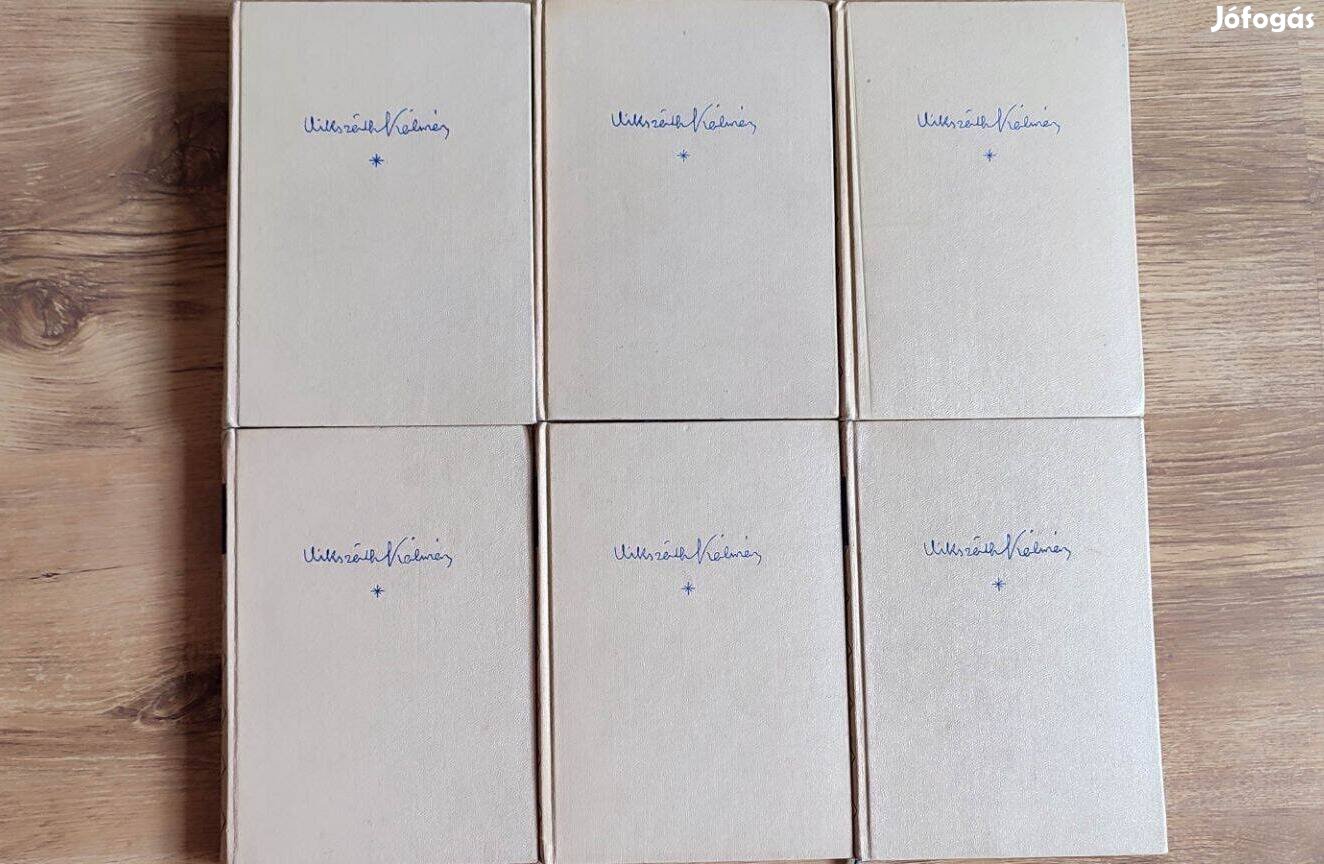 Jófogás
Mikszáth Kálmán
Mikszáth Kálmán
Mikszáth Kálmán
Mikszáth Kálmán
Mikszáth Kálmán
Mikszáth Kálmán